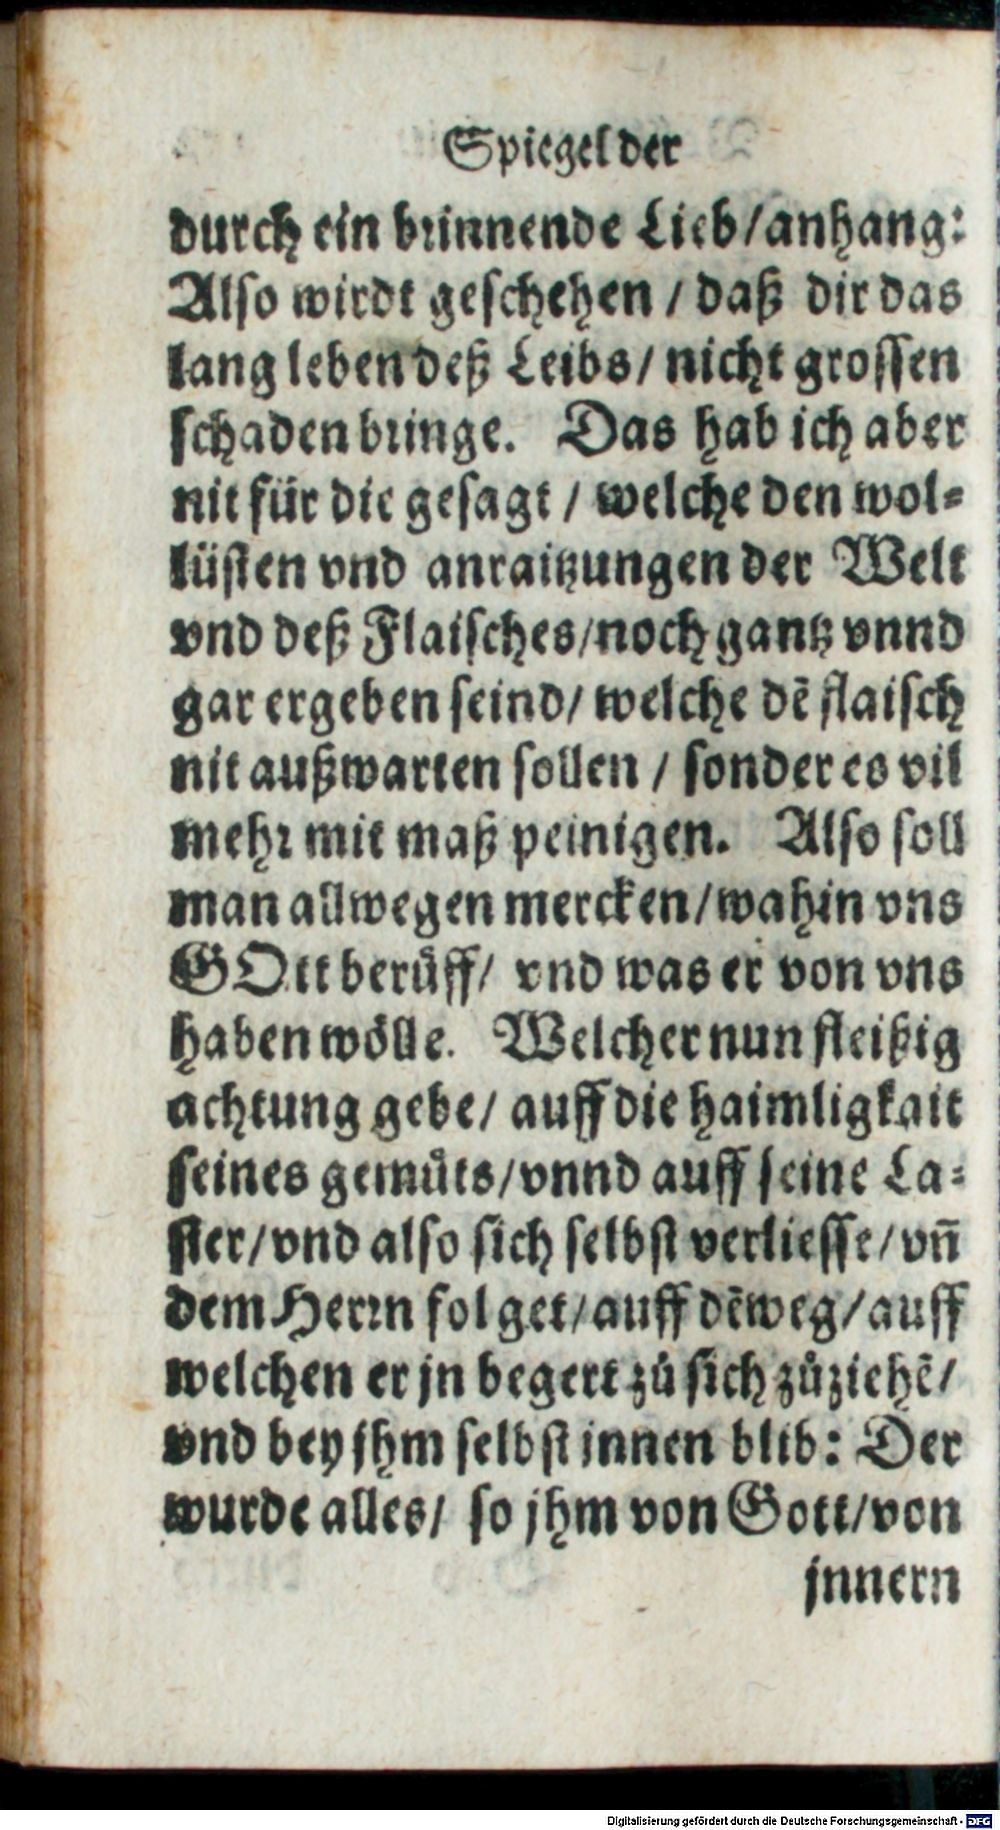 Spiegel der
durch ein brinnende Lieb/anhang:
Also wirdt geschehen / daß dir das
lang leben deß Leibs/ nicht grossen
schaden bringe. Das hab ich aber
nit für die gesagt / welche den wol⸗
lüsten vnd anraitzungen der Welt
vnd deß Flaisches/noch gantz vnnd
gar ergeben seind/ welche dē flaisch
nit außwarten sollen / sonder es vil
mehr mit maß peinigen. Also soll
man allwegen mercken/wahin vns
GOtt berůff/ vnd was er von vns
haben wölle. Welcher nun fleißig
achtung gebe/ auff die haimligkait
seines gemůts/vnnd auff seine La⸗
ster/vnd also sich selbst verliesse/vñ
dem Herrn folget/auff dē weg/auff
welchen er jn begert zů sich zůziehē/
vnd bey jhm selbst jnnen blib: Der
wurde alles/ so jhm von Gott/von
jnnern
Digitalisierung gefördert durch die Deutsche Forschungsgemeinschaft - DFG